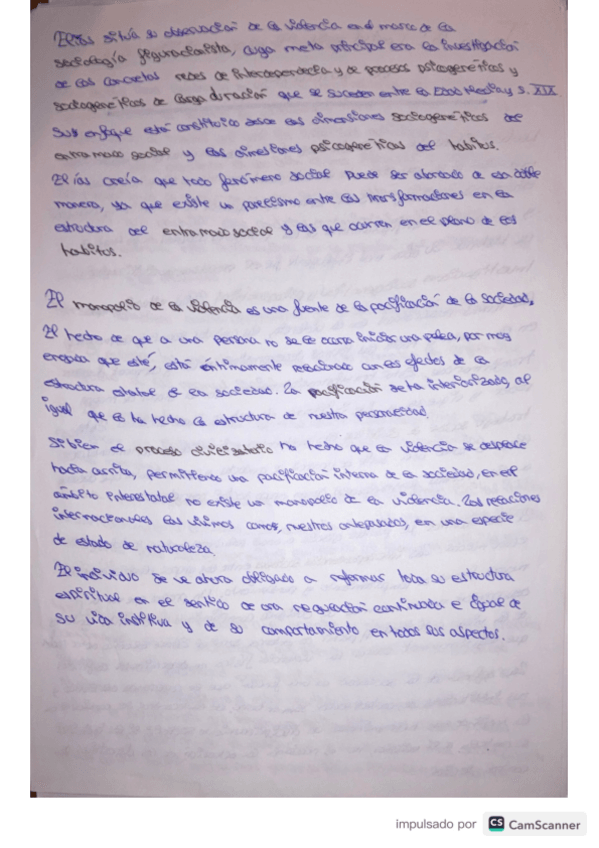 Elías sitúa su observación de la violencia en el marco de la
sociología figuracionista, cuya meta principal era la investigación
de las concretas redes de interdependencia y de procesos psicogenéticos y
sociogenéticos de larga duración que se suceden entre la Edad Media y s. XIX
Su enfoque está constituido desde las dimensiones sociogenéticas del
entramado social y las dimensiones psicogenéticas del habitus.
Elías creía que todo fenómeno social puede ser abordado de esa doble
manera, ya que existe un paralelismo entre las transformaciones en la
estructura del entramado social y las que ocurren en el plano de los
habitus.
El monopolio de la violencia es una fuente de la pacificación de la sociedad,
El hecho de que a una persona no se le ocurra iniciar una pelea, por muy
enojada que esté, está íntimamente relacionado con los efectos de la
estructura estatal de la sociedad. La pacificación se ha interiorizado, al
igual que lo ha hecho la estructura de nuestra personalidad.
Si bien el proceso civilizatorio ha hecho que la violencia se desplace
hacia arriba, permitiendo una pacificación interna de la sociedad, en el
ámbito interestatal no existe un monopolio de la violencia. Las relaciones
internacionales las vivimos como, nuestros antepasados, en una especie
de estado de naturaleza.
El individuo se ve ahora obligado a reformar toda su estructura
espiritual en el sentido de una regulación continuada e igual de
su vida instintiva y de su comportamiento en todos los aspectos.
impulsado por CS CamScanner